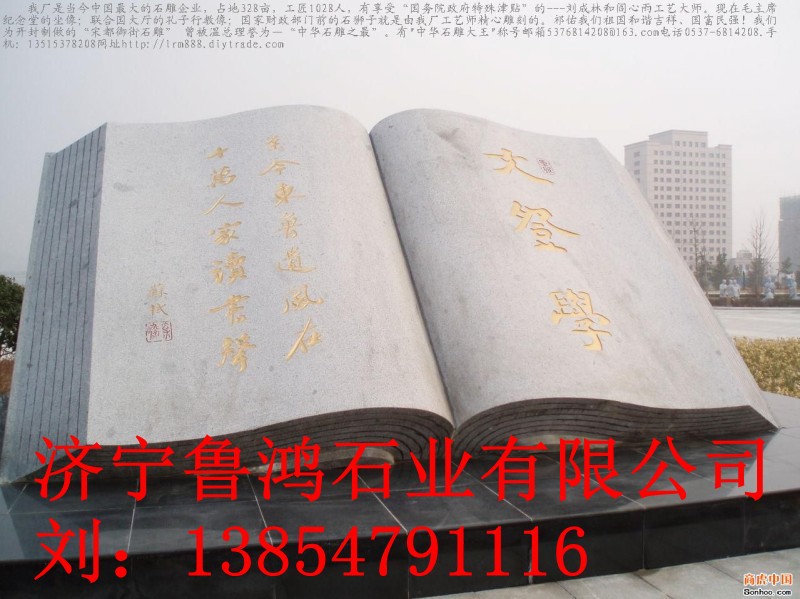 我厂是当今中国最大的石雕企业，占地328亩，工匠1028人，有享受“国务院政府特殊津贴”的---刘成林和阎心雨工艺大师。现在毛主席
纪念堂的坐像；联合国大厅的孔子行教像；国家财政部门前的石狮子就是由我厂工艺师精心雕刻的。祈佑我们祖国和谐吉祥，国富民强！我们
为开封制做的“宋都御街石雕” 曾被温总理誉为一“中华石雕之最”。有"中华石雕大王"称号邮箱5376814208@163.com电话0537-6814208.手
机：13515378208网址http://lrm888.diytrade.com
文登學
至今東魯遺風在
十萬人家讀書聲
济宁鲁鸿石业有限公司
刘：13854791116
商虎中国
Sonhoo.com